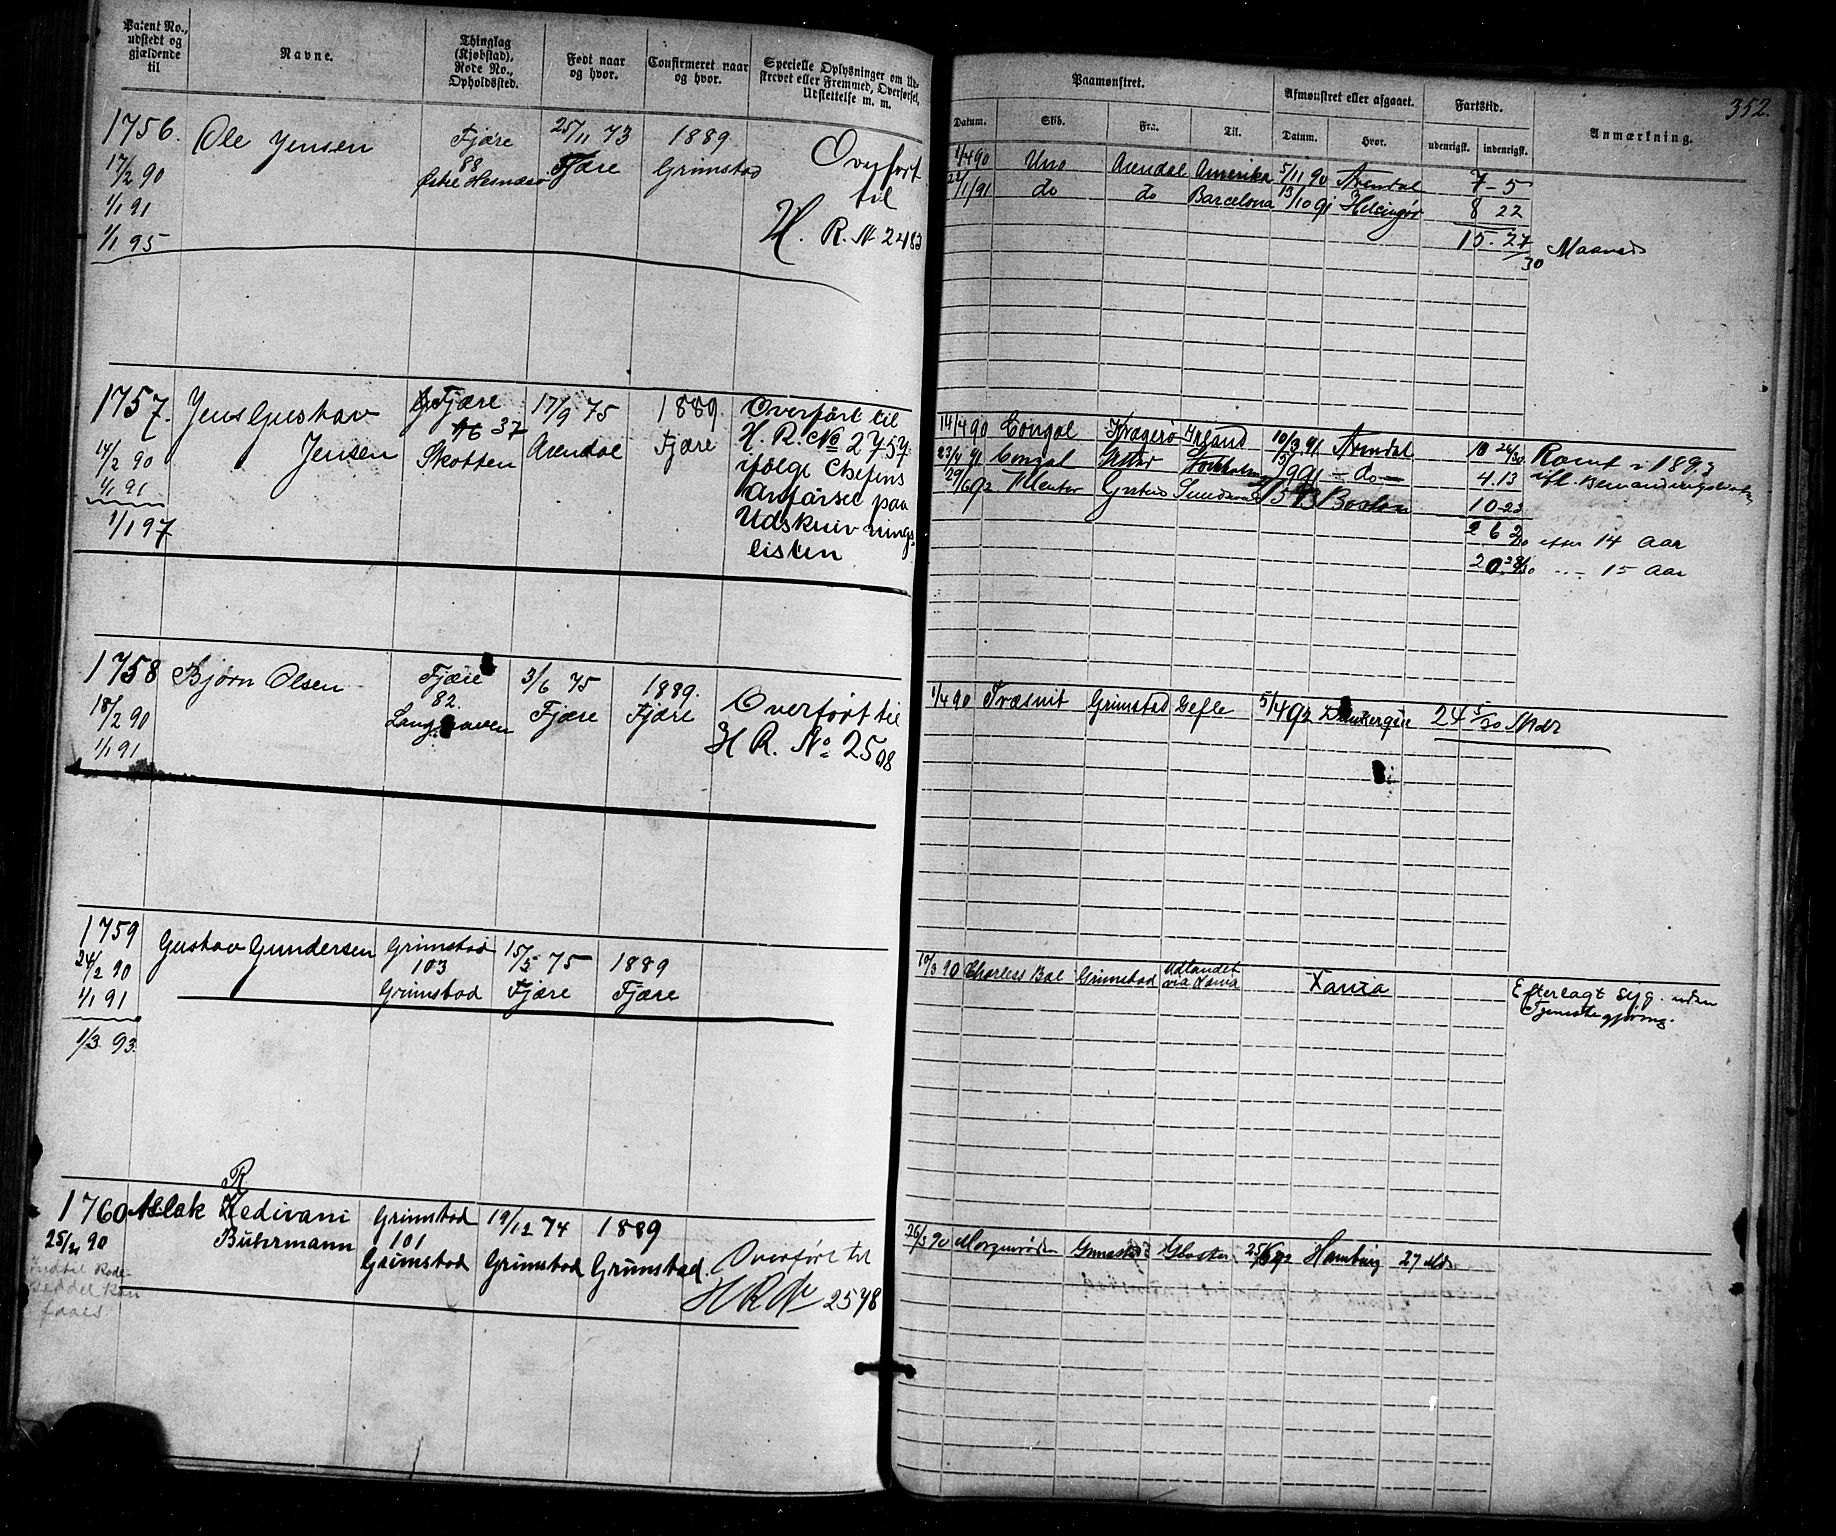 Patent No., udstedt og gjældende til
Navne.
Thinglag (Kjøbstad), Rode No., Opholdssted.
Født naar og hvor.
Confirmeret naar og hvor.
Specielle Oplysninger om Udskrevet eller Fremmed, Overførsel, Udslettelse m. m.
Paamønstret.
Afmønstret eller afgaaet.
Fartstid.
Anmærkning.
352.
Datum.
Skib.
Fra.
Til.
Datum.
Hvor.
udenrigsk.
indenrigsk.
1756.
17/2 90
1/1 91
1/1 95
Ole Jensen
Fjære
88
Østre Hesnæsø
25/11 73
Fjære
1889.
Grimstad
Overført
til
H. R. № 2483
1/4 90 Uno Arendal Amerika 5/11 90 Arendal 7-5
22/1 91 do do Barcelona 13/10 91 Helsingør 8 22
15. 27/30 Maaneder
1757.
14/2 90
1/1 91
1/1 97
Jens Gustav
Jensen
Fjære
37
Skotten
17/9 75
Arendal
1889.
Fjære
Overført til
H. R. № 2757
ifølge Chefens
Anførsel paa
Udskrivnings-
listen
14/4 90 Congal Kragerø Irland 10/3 91 Arendal 10 26/30
23/4 91 Congal Stockholm do 4.13
29/6 92 Mentor Boston 10-23
Rømt i 1893
ifl.
26 2/30 efter 14 Aar
20. 28/30 15 Aar
1758
18/2 90
1/1 91
Bjørn Olsen
Fjære
82.
Langhaven
3/6 75
Fjære
1889.
Fjære
Overført til
H R. No 2508
1/4 90 Træsnit Grimstad Gefle 5/4 92 24 5/30 Mdr
1759
24/2 90
1/1 91
1/3 93.
Gustav Gundersen
Grimstad
103
Grimstad
15/5 75
Fjære
1889
Fjære
10/3 90 Charles Bal Grimstad Udlandet via Xania Xania
Efterlagt Sjg. uden
Tjenestegjøring.
1760
25/2 90
indtil Rode-
seddel kan
faaes
R
Aslak Hedivani
Buhrmann
Grimstad
101
Grimstad
19/12 74
Grimstad
1889
Grimstad
Overført til
H R № 2578
26/3 90 Morgenrøden Grimstad Gloster 25/6 92 Hamburg 27 Mdr